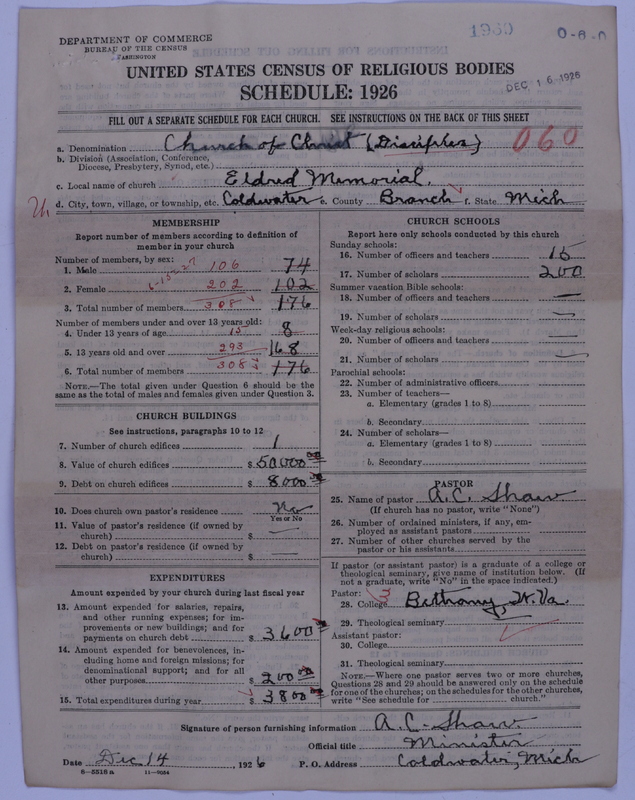 1930 0-8-0
DEPARTMENT OF COMMERCE
BUREAU OF THE CENSUS
WASHINGTON
DEC 16 1926
UNITED STATES CENSUS OF RELIGIOUS BODIES
SCHEDULE: 1926
FILL OUT A SEPARATE SCHEDULE FOR EACH CHURCH. SEE INSTRUCTIONS ON THE BACK OF THIS SHEET
a. Denomination Church of Christ (Disciples) 060
b. Division (Association, Conference,
Diocese, Presbytery, Synod, etc.)
c. Local name of church Eldred Memorial.
d. City, town, village, or township, etc. Coldwater e. County Branch f. State Mich
MEMBERSHIP
Report number of members according to definition of
member in your church
Number of members, by sex:
1. Male 106 74
2. Female 6-15-27 202 102
3. Total number of members 308 176
Number of members under and over 13 years old:
4. Under 13 years of age 15 8
5. 13 years old and over 293 168
6. Total number of members 308 176
NOTE.—The total given under Question 6 should be
same as the total of males and females given under Question 3.
CHURCH BUILDINGS
See instructions, paragraphs 10 to 12
7. Number of church edifices 1
8. Value of church edifices $ 50000 00
9. Debt on church edifices $ 8000 00
10. Does church own pastor's residence No
Yes or No
11. Value of pastor's residence (if owned by
church) $ —
12. Debt on pastor's residence (if owned by
church) $ —
EXPENDITURES
Amount expended by your church during last fiscal year
13. Amount expended for salaries, repairs,
and other running expenses; for im-
provements or new buildings; and for
payments on church debt $ 3600
14. Amount expended for benevolences, in-
cluding home and foreign missions; for
denominational support; and for all
other purposes $ 200 00
15. Total expenditures during year $ 3800
CHURCH SCHOOLS
Report here only schools conducted by this church
Sunday schools:
16. Number of officers and teachers 15
17. Number of scholars 200
Summer vacation Bible schools:
18. Number of officers and teachers —
19. Number of scholars —
Week-day religious schools:
20. Number of officers and teachers —
21. Number of scholars —
Parochial schools:
22. Number of administrative officers
23. Number of teachers—
a. Elementary (grades 1 to 8)
b. Secondary
24. Number of scholars—
a. Elementary (grades 1 to 8)
b. Secondary
PASTOR
25. Name of pastor A. C. Shaw
(If church has no pastor, write "None")
26. Number of ordained ministers, if any, em-
ployed as assistant pastors
27. Number of other churches served by the
pastor or his assistants
If pastor (or assistant pastor) is a graduate of a college or
theological seminary, give name of institution below. (If
not a graduate, write "No" in the space indicated.)
Pastor: 3
28. College Bethany, W. Va.
29. Theological seminary
Assistant pastor:
30. College
31. Theological seminary
NOTE.—Where one pastor serves two or more churches,
Questions 28 and 29 should be answered only on the schedule
for one of the churches; on the schedules for the other churches,
write "See schedule for church."
Signature of person furnishing information A. C. Shaw.
Official title Minister
Date Dec 14 1926 P. O. Address Coldwater, Mich
8—5518a 11—9054